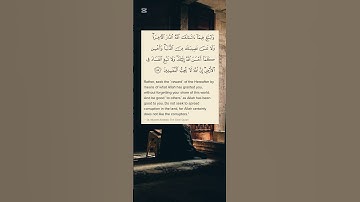 وَٱبْتَغِ فِيمَآ ءَاتَىٰكَ ٱللَّهُ ٱلدَّارَ ٱلْـَٔاخِرَةَ
وَلَا تَنسَ نَصِيبَكَ مِنَ ٱلدُّنْيَا وَأَحْسِن
كَمَآ أَحْسَنَ ٱللَّهُ إِلَيْكَ وَلَا تَبْغِ ٱلْفَسَادَ فِى
ٱلْأَرْضِ إِنَّ ٱللَّهَ لَا يُحِبُّ ٱلْمُفْسِدِينَ ٧٧
Rather, seek the ˹reward˺ of the Hereafter by
means of what Allah has granted you,
without forgetting your share of this world.
And be good ˹to others˺ as Allah has been
good to you. Do not seek to spread
corruption in the land, for Allah certainly
does not like the corruptors."